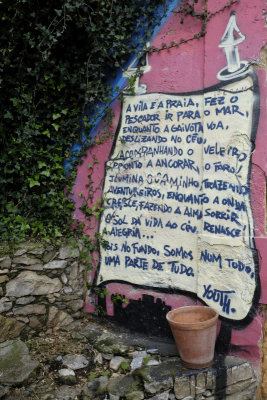 A VILA E A PRAIA, FEZ O
PESCADOR IR PARA O MAR,
ENQUANTO A GAIVOTA VOA,
DESLIZANDO NO CÉU,
ACOMPANHANDO O VELEIRO
PRONTO A ANCORAR, O FAROL
ILUMINA O CAMINHO, TRAZENDO
AVENTUREIROS, ENQUANTO A ONDA
CRESCE, FAZENDO A ALMA SORRIR,
O SOL DÁ VIDA AO CÉU, RENASCE
A ALEGRIA...
POIS NO FUNDO, SOMOS NUM TODO,
UMA PARTE DE TUDO.
YOUTH.